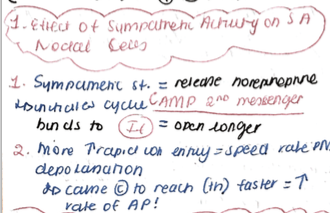 1. Effect of Sympathetic Activity on SA
Nodal Cells
1. Sympathetic st. = release norepinephrine
cyclic CAMP 2nd messenger
binds to If = open longer
2. More rapid ion entry = speed rate
depolarization
cause to reach faster = ↑
rate of AP!